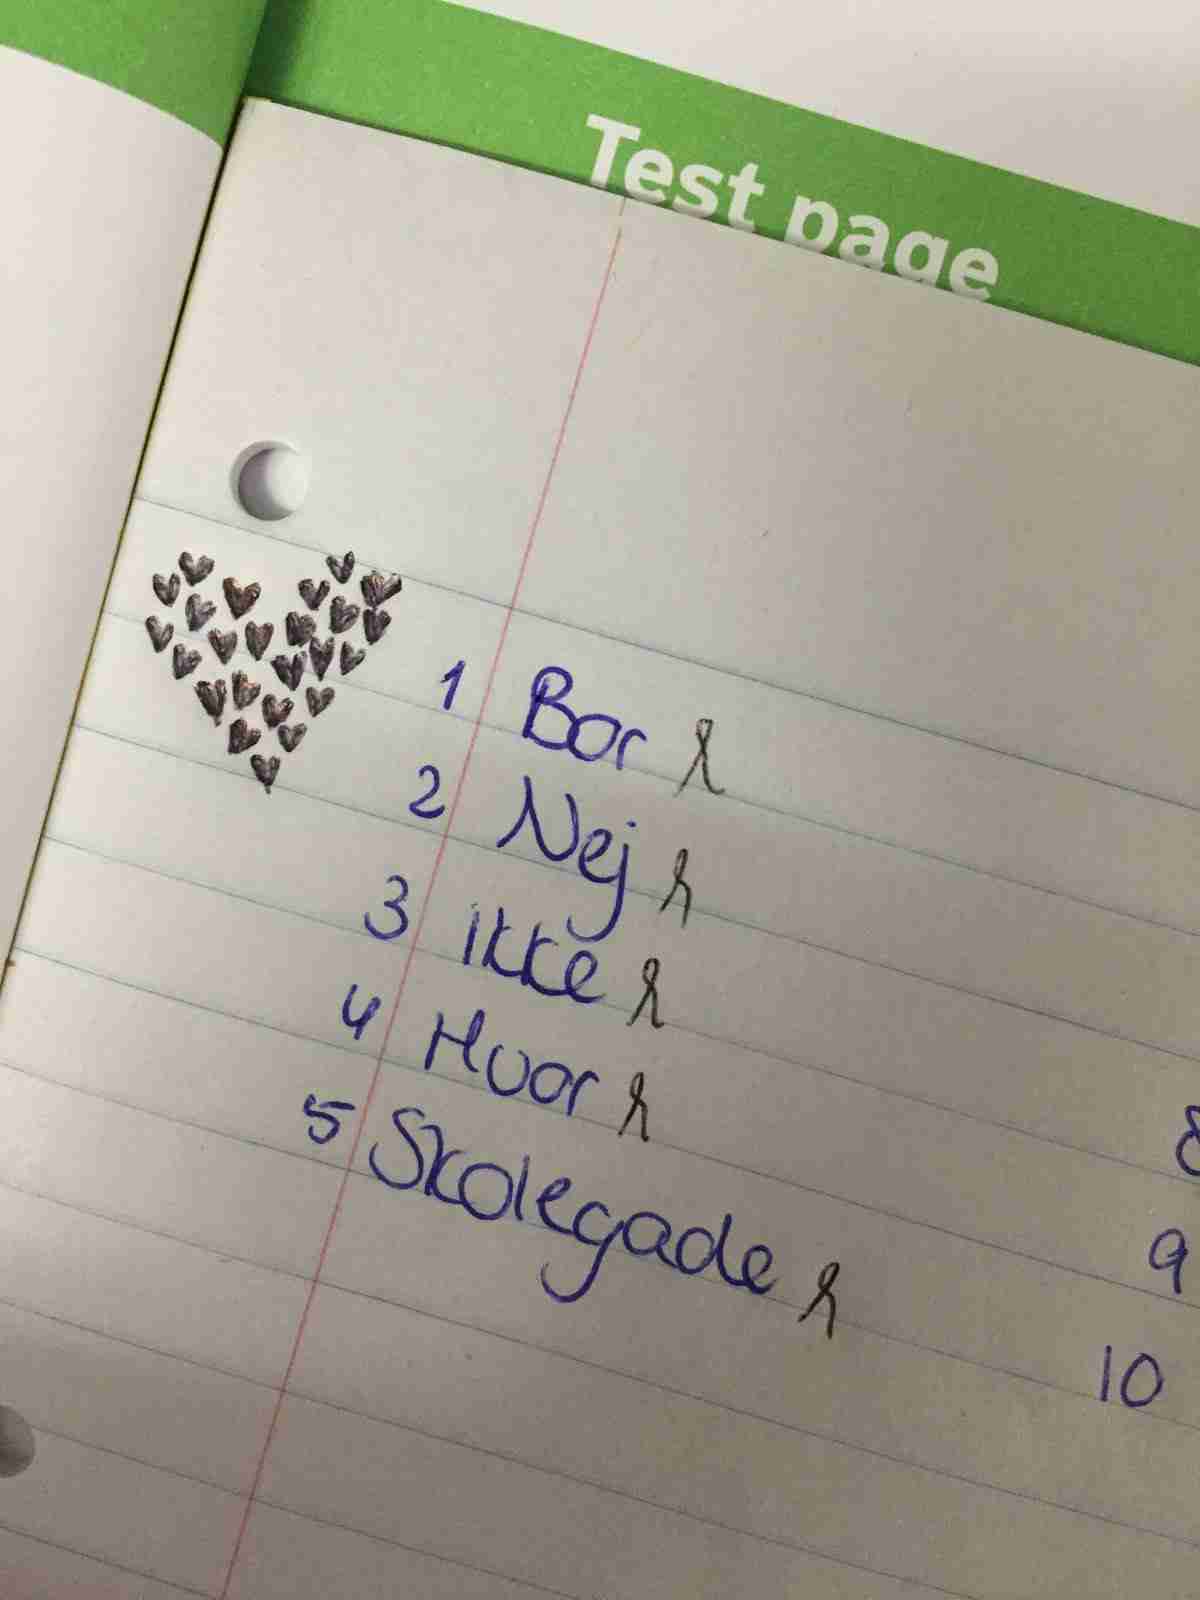 Test page
1 Bor
2 Nej
3 ikke
4 Hvor
5 Skolegade
8
9
10